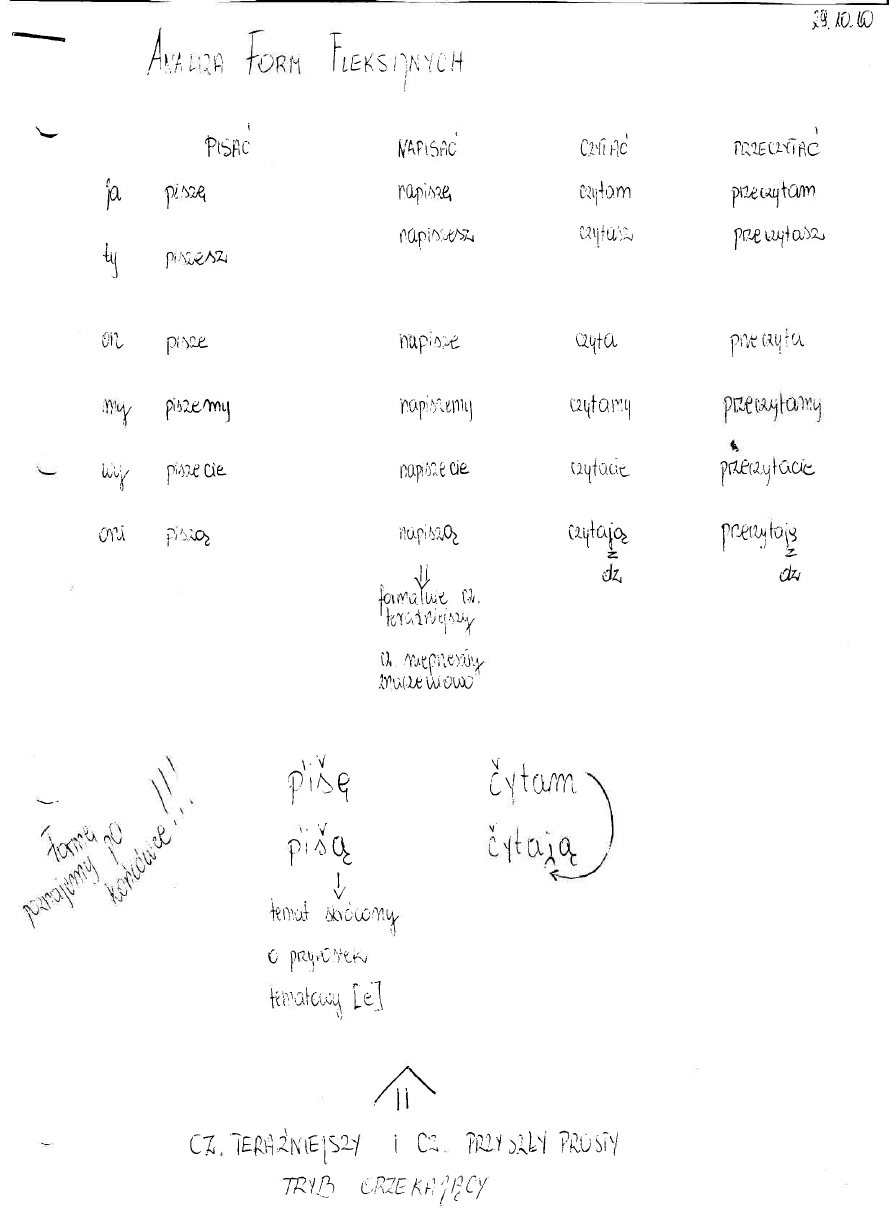 29.10.10
ANALIZA FORM FLEKSIJNYCH
PISAĆ NAPISAĆ CZYTAĆ PRZECZYTAĆ
ja piszę napiszę czytam przeczytam
ty piszesz napiszesz czytasz przeczytasz
on pisze napisze czyta przeczyta
my piszemy napiszemy czytamy przeczytamy
wy piszecie napiszecie czytacie przeczytacie
oni piszą napiszą czytają przeczytają
z z
dz dz
formalnie cz.
teraźniejszy
cz.
znaczeniowo
pišę čytam
pišą čytają
Formę
poznajemy po
końcówce!!!
temat skrócony
o przyrostek
tematowy [e]
CZ. TERAŹNIEJSZY I CZ. PRZYSZŁY PROSTY
TRYB ORZEKAJĄCY